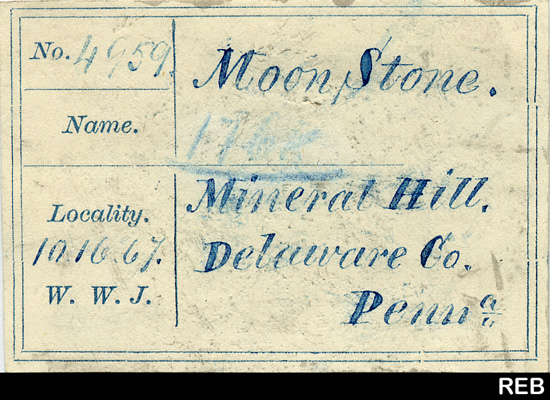 No. 4959.
Moon Stone.
Name.
Mineral Hill.
Locality.
10.16.67.
Delaware Co.
W. W. J.
Penn a/"
REB